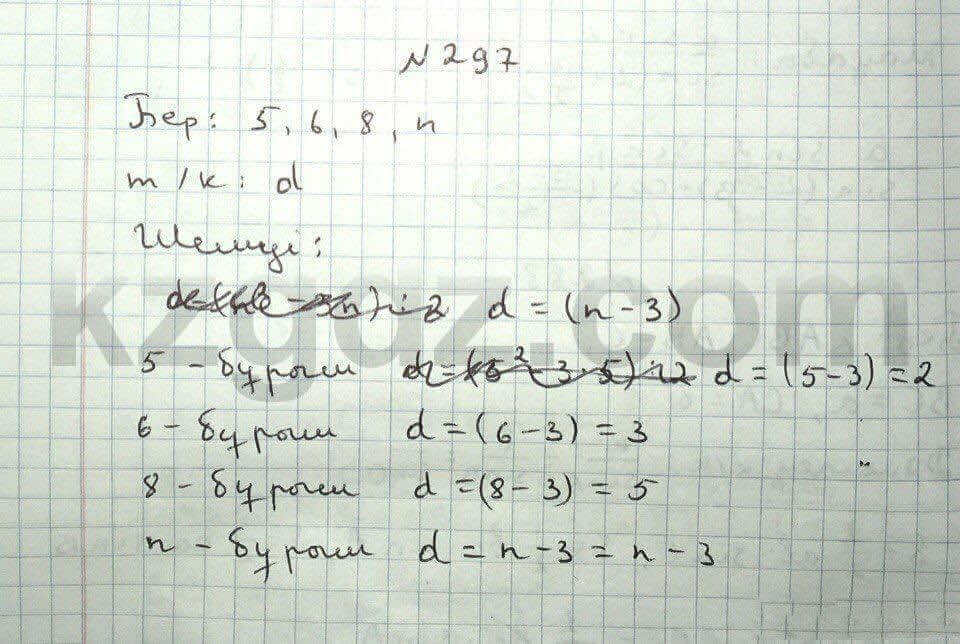 № 297
Бер: 5, 6, 8, n
т/к: d
Шешуі:
d = (n - 3)
5 - бұрыш d = (5-3) = 2
6 - бұрыш d = (6-3) = 3
8 - бұрыш d = (8-3) = 5
n - бұрыш d = n-3 = n - 3
kzgdz.com